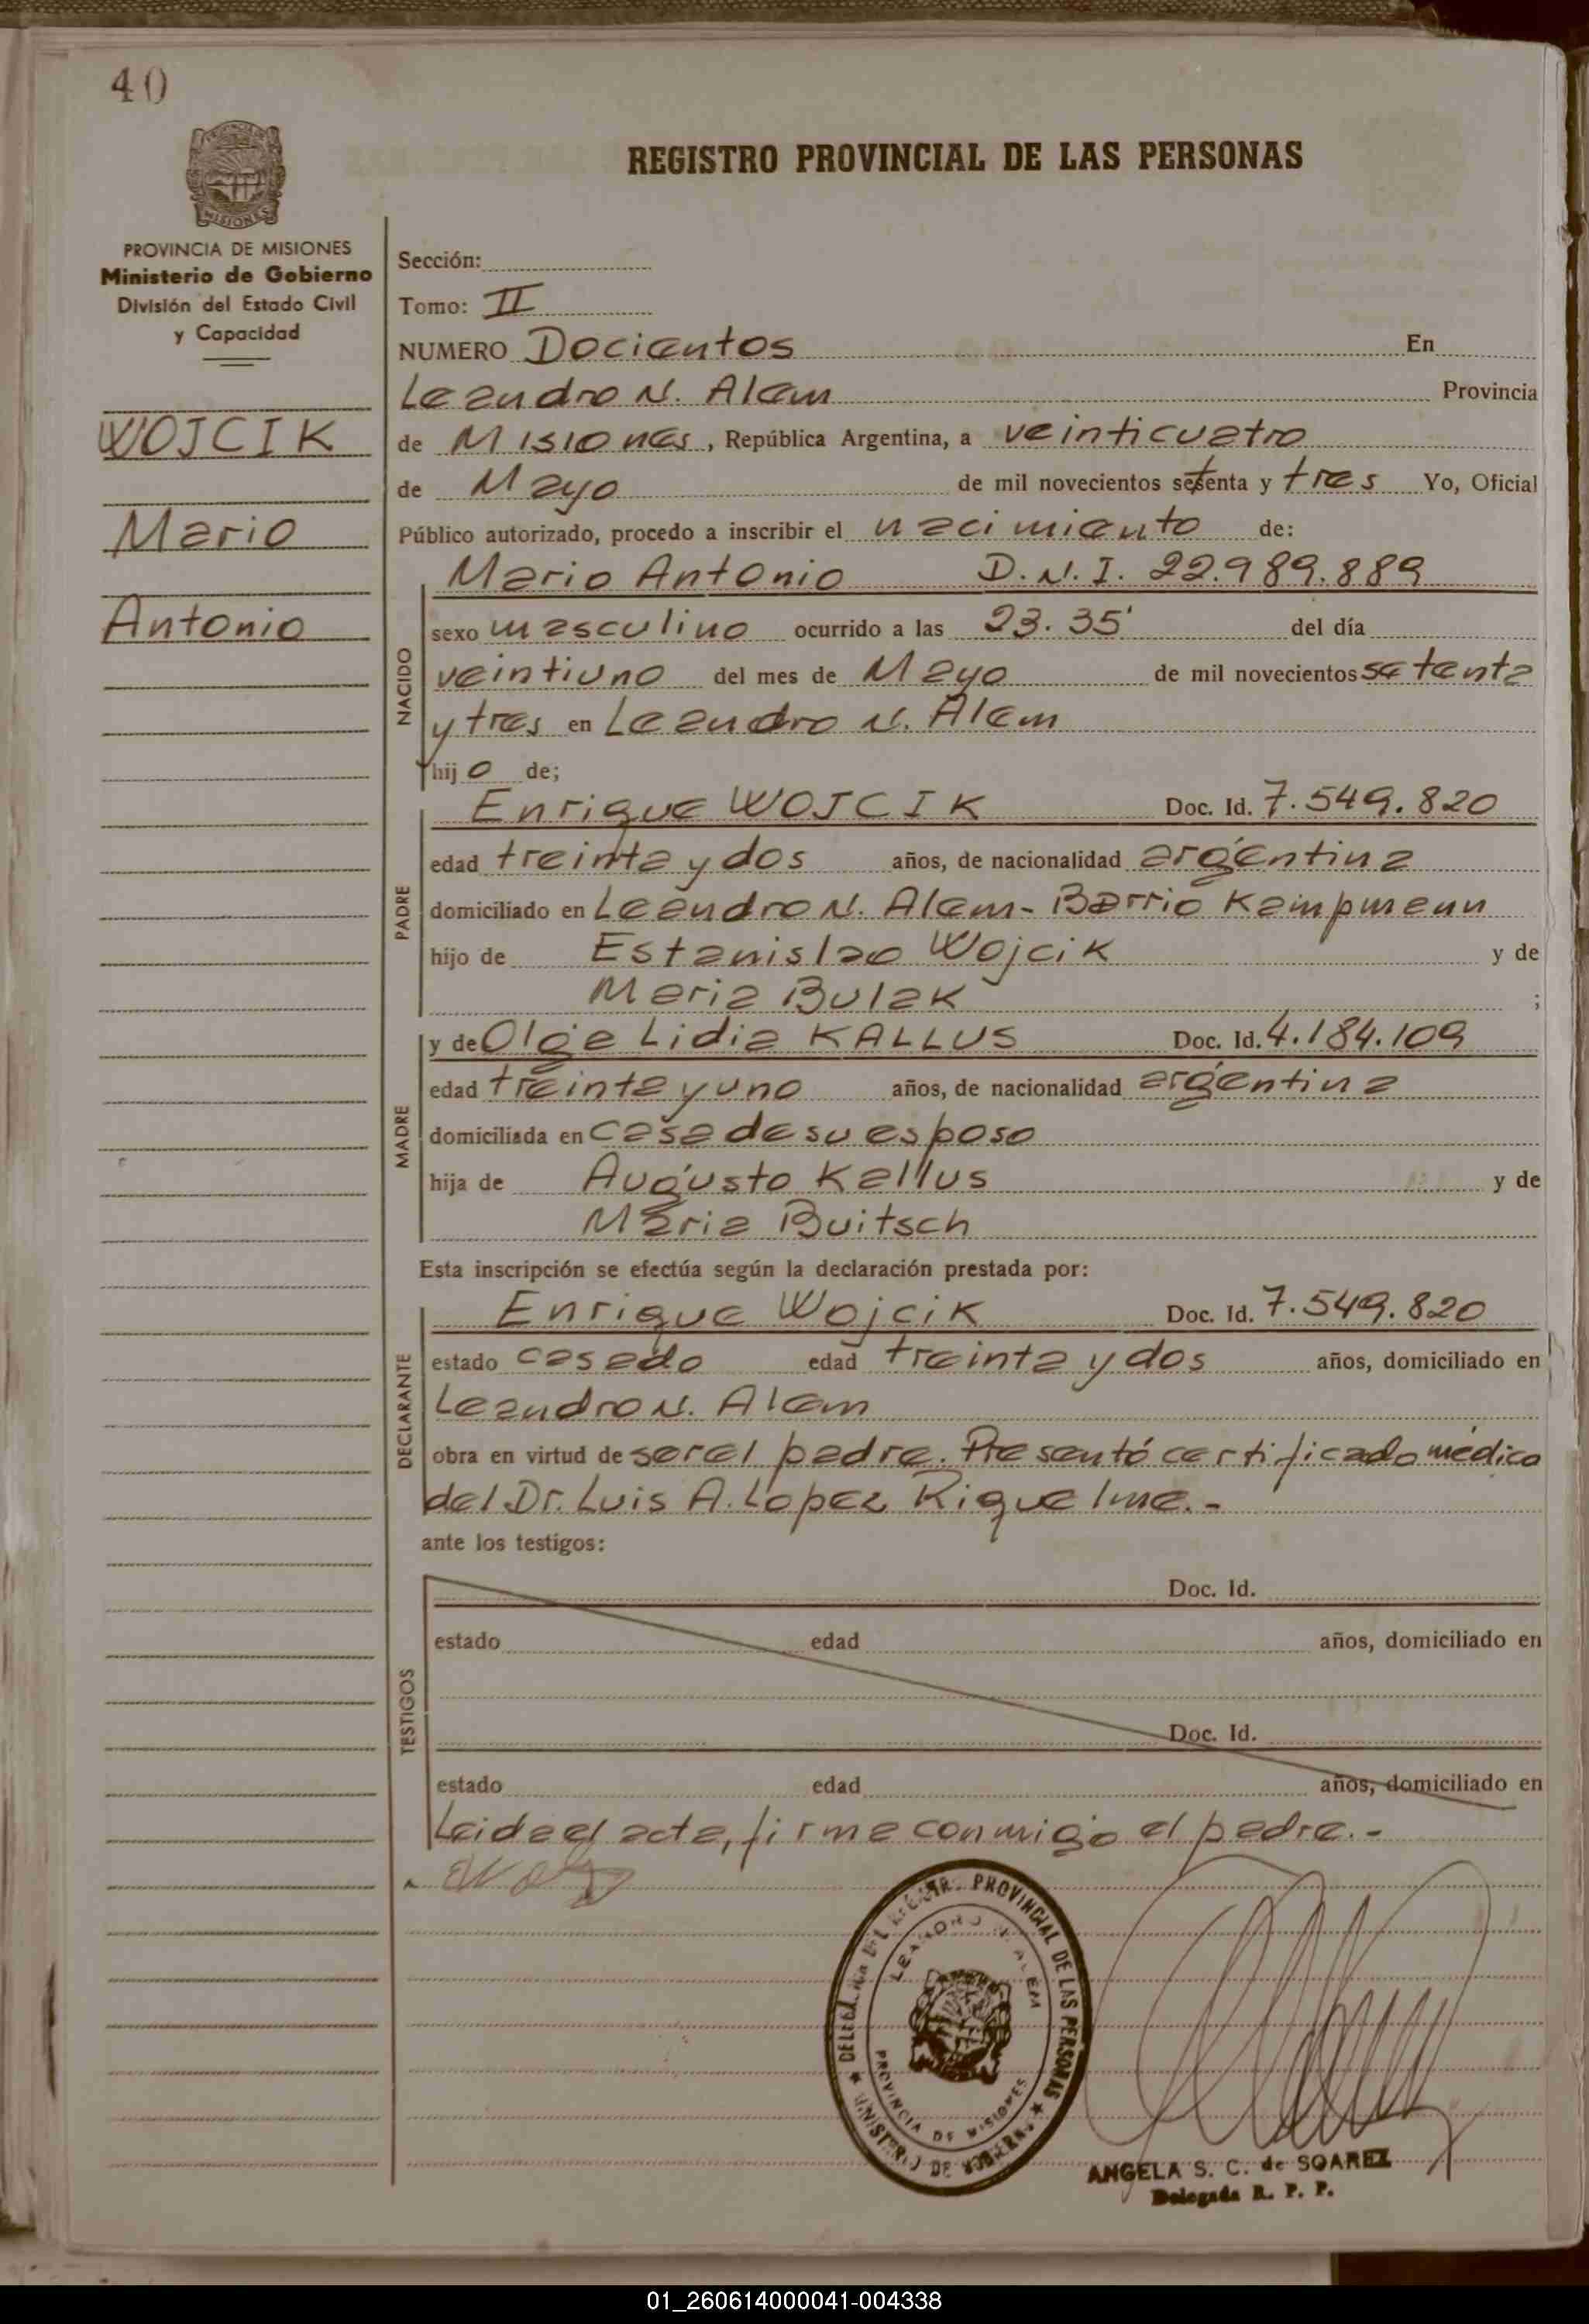 40
REGISTRO PROVINCIAL DE LAS PERSONAS
MISIONES
PROVINCIA DE MISIONES
Ministerio de Gobierno
División del Estado Civil
y Capacidad
WOJCIK
Mario
Antonio
Sección:
Tomo: II
NUMERO Docientos En
Leandro N. Alem Provincia
de Misiones, República Argentina, a veinticuatro
de Mayo de mil novecientos setenta y tres Yo, Oficial
Público autorizado, procedo a inscribir el nacimiento de:
Mario Antonio D.N.I. 22.989.889
NACIDO
sexo masculino ocurrido a las 23.35' del día
veintiuno del mes de Mayo de mil novecientos setenta
y tres en Leandro N. Alem
hijo de;
PADRE
Enrique WOJCIK Doc. Id. 7.549.820
edad treinta y dos años, de nacionalidad argentina
domiciliado en Leandro N. Alem - Barrio Kampmann
hijo de Estanislao Wojcik y de
Maria Bulak ;
MADRE
y de Olga Lidia KALLUS Doc. Id. 4.184.109
edad treinta y uno años, de nacionalidad argentina
domiciliada en casa de su esposo
hija de Augusto Kallus y de
Maria Buitsch
Esta inscripción se efectúa según la declaración prestada por:
DECLARANTE
Enrique Wojcik Doc. Id. 7.549.820
estado casado edad treinta y dos años, domiciliado en
Leandro N. Alem
obra en virtud de ser el padre. Presentó certificado médico
del Dr. Luis A. Lopez Riquelme.-
ante los testigos:
TESTIGOS
Doc. Id.
estado edad años, domiciliado en
Doc. Id.
estado edad años, domiciliado en
Leida el acta, firma conmigo el padre.-
PROVINCIAL DE LAS PERSONAS
LEANDRO N. ALEM
PROVINCIA DE MISIONES
MINISTERIO DE GOBIERNO
ANGELA S. C. de SOAREZ
Delegada R. P. P.
01_260614000041-004338